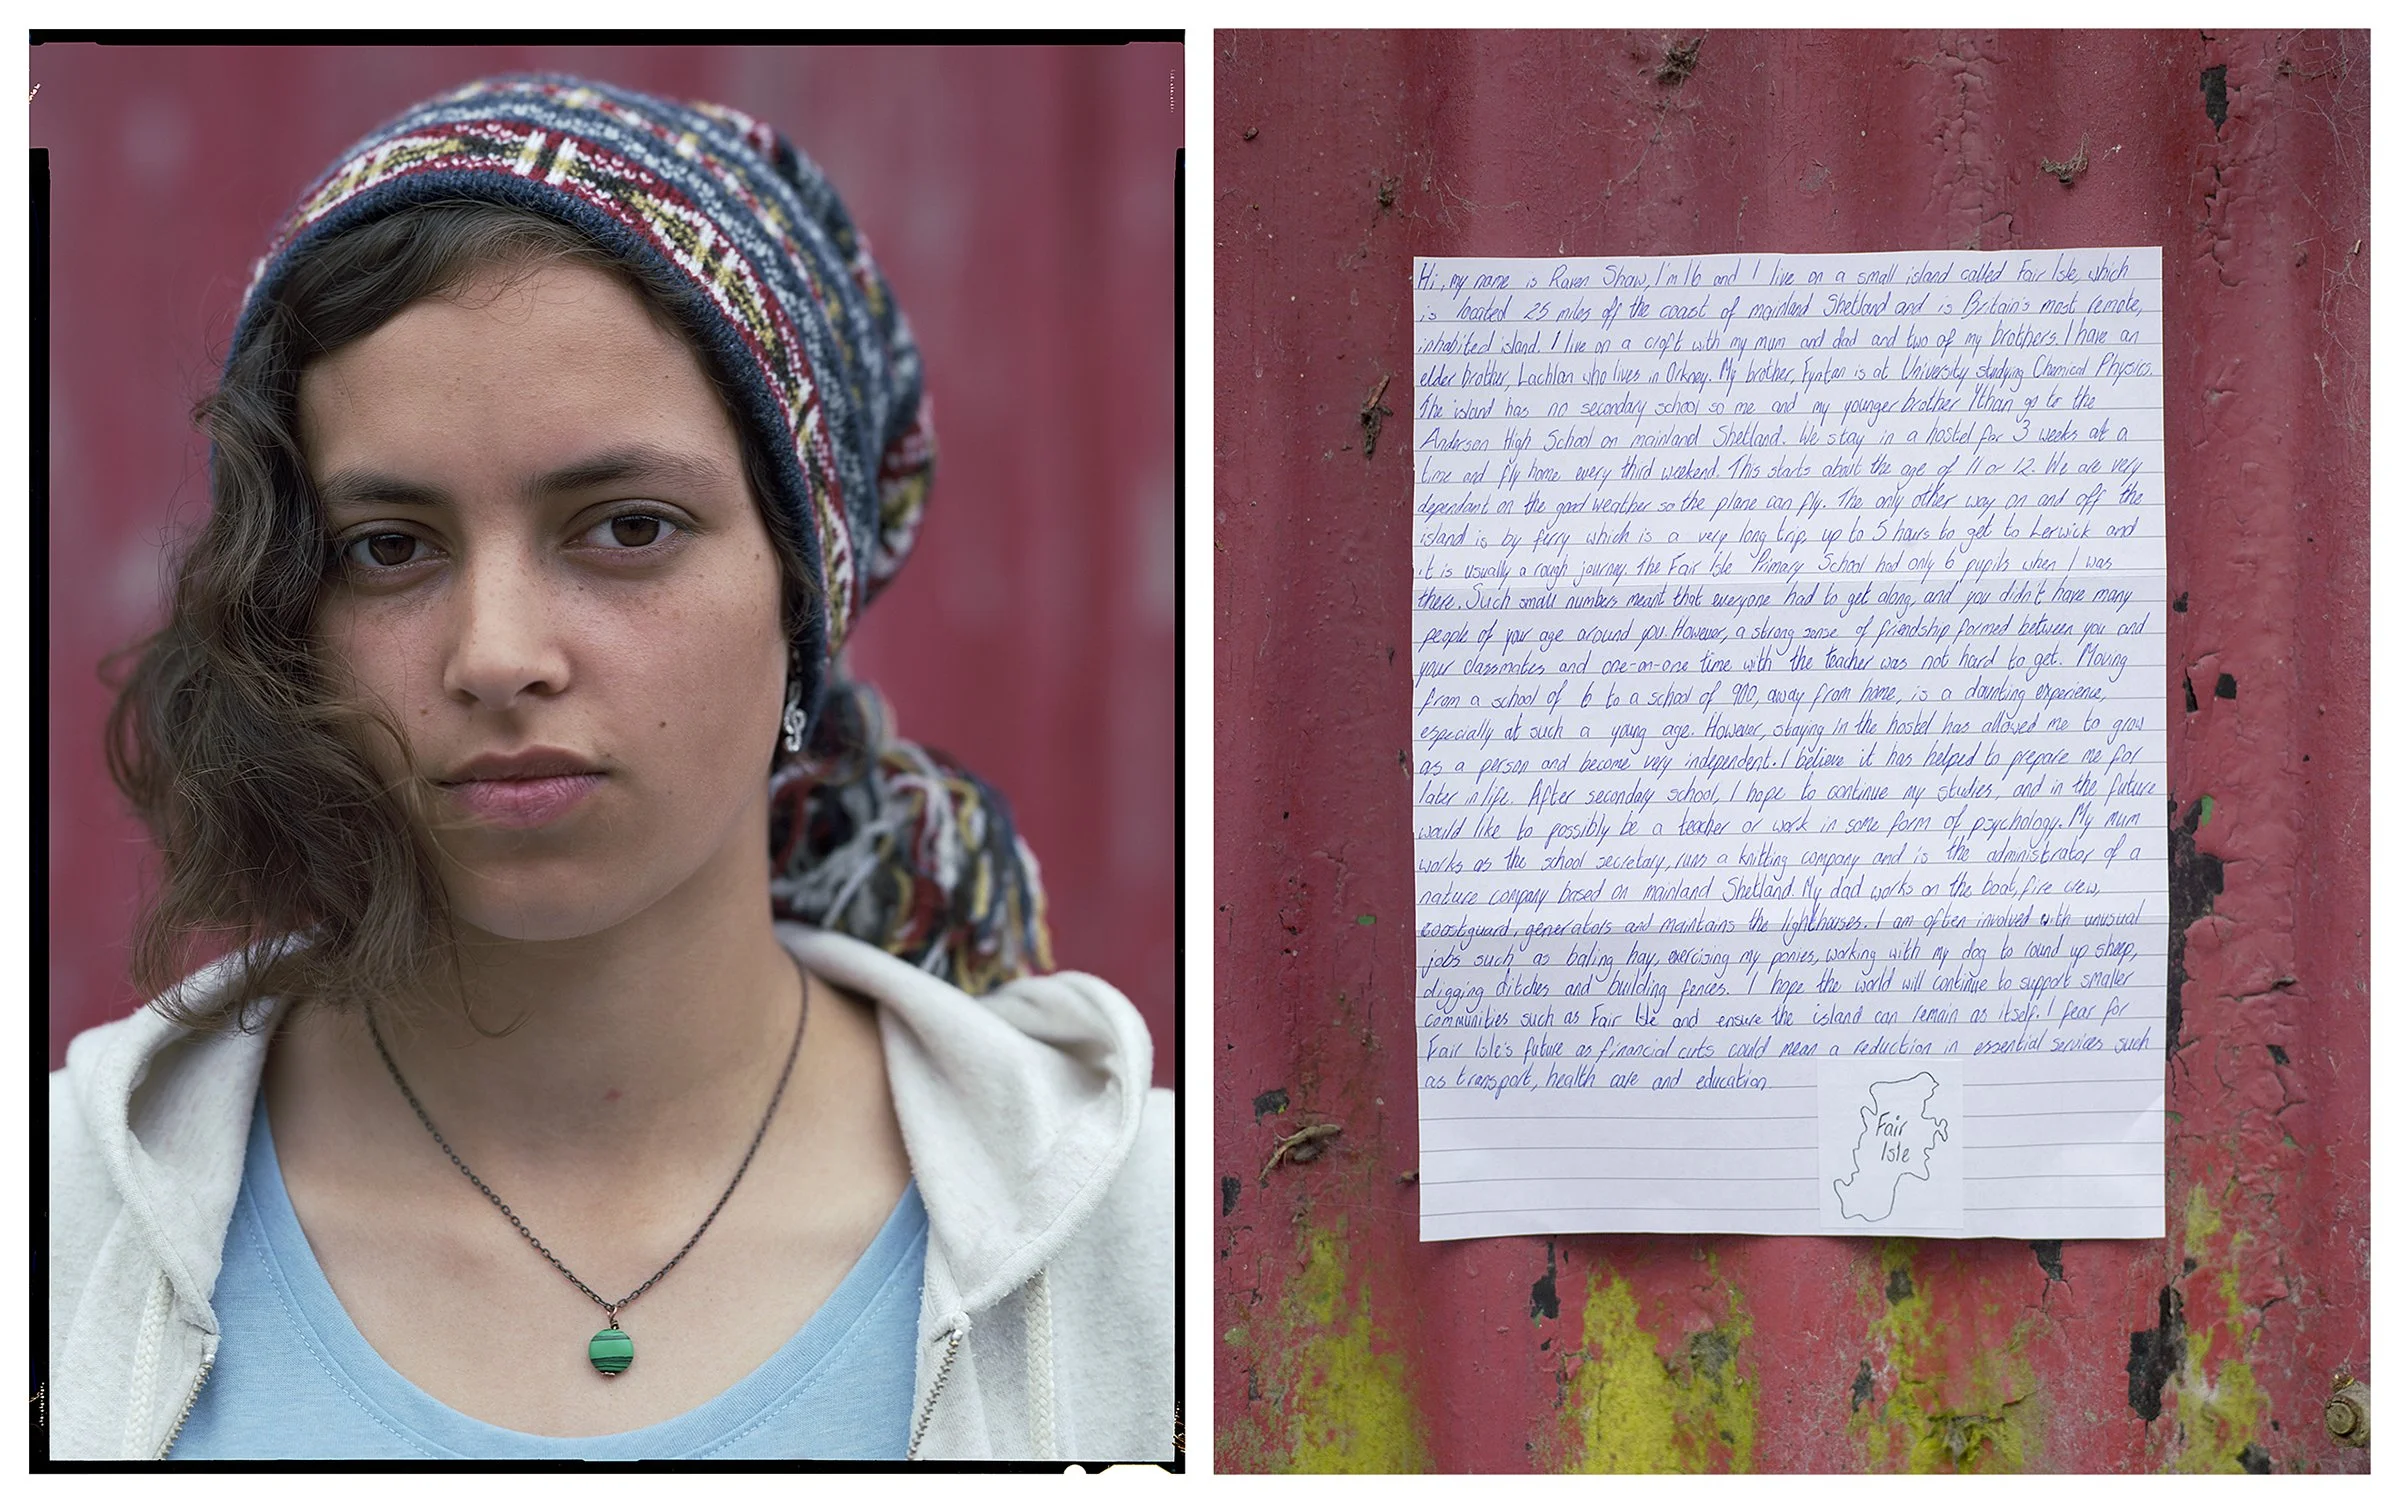 Hi, my name is Raven Shaw, I'm 16 and I live on a small island called Fair Isle, which
is located 25 miles off the coast of mainland Shetland and is Britain's most remote,
inhabited island. I live on a croft with my mum and dad and two of my brothers. I have an
elder brother, Lachlan who lives in Orkney. My brother, Fyntan is at University studying Chemical Physics.
The island has no secondary school so me and my younger brother Ythan go to the
Anderson High School on mainland Shetland. We stay in a hostel for 3 weeks at a
time and fly home every third weekend. This starts about the age of 11 or 12. We are very
dependant on the good weather so the plane can fly. The only other way on and off the
island is by ferry which is a very long trip, up to 5 hours to get to Lerwick and
it is usually a rough journey. The Fair Isle Primary School had only 6 pupils when I was
there. Such small numbers meant that everyone had to get along, and you didn't have many
people of your age around you. However, a strong sense of friendship formed between you and
your classmates and one-on-one time with the teacher was not hard to get. Moving
from a school of 6 to a school of 900, away from home, is a daunting experience,
especially at such a young age. However, staying in the hostel has allowed me to grow
as a person and become very independent. I believe it has helped to prepare me for
later in life. After secondary school, I hope to continue my studies, and in the future
would like to possibly be a teacher or work in some form of psychology. My mum
works as the school secretary, runs a knitting company and is the administrator of a
nature company based on mainland Shetland. My dad works on the boat, fire crew,
coastguard, generators and maintains the lighthouses. I am often involved with unusual
jobs such as baling hay, exercising my ponies, working with my dog to round up sheep,
digging ditches and building fences. I hope the world will continue to support smaller
communities such as Fair Isle and ensure the island can remain as itself. I fear for
Fair Isle's future as financial cuts could mean a reduction in essential services such
as transport, health care and education.
Fair
Isle